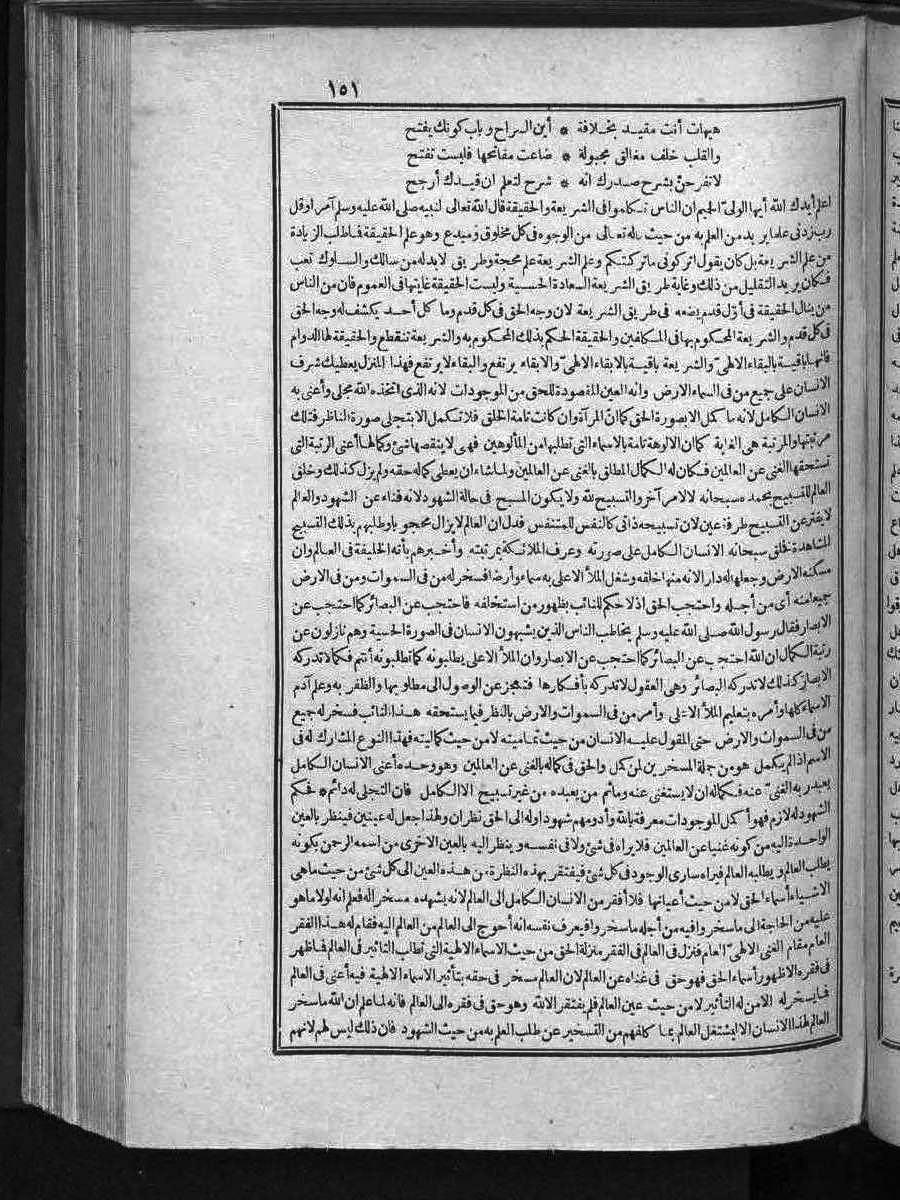 ١٥١
هيهات أنت مقيد بخلافة * أين السراح وباب كونك يفتح
والقلب خلف مغالق مجبولة * ضاعت مفاتحها فليست تفتح
لا تفرحنّ بشرح صدرك انه * شرح لتعلم ان قيدك أرجح
اعلم أيدك الله أيها الولىّ الحميم ان الناس تكاموا فى الشريعة والحقيقة قال الله تعالى لنبيه صلى الله عليه وسلم آمرا وقل
رب زدنى علما يريد من العلم به من حيث ماله تعالى من الوجوه فى كل مخلوق ومبدع وهو علم الحقيقة فما طلب الزيادة
من علم الشريعة بل كان يقول اتركونى ما تركتكم وعلم الشريعة علم محجة وطريق لا بد له من سالك والسلوك تعب
فكان يريد التقليل من ذلك وغاية طريق الشريعة السعادة الحسية وليست الحقيقة غايتها فى العموم فان من الناس
من ينال الحقيقة فى أوّل قدم يضعه فى طريق الشريعة لان وجه الحق فى كل قدم وما كل أحد يكشف له وجه الحق
فى كل قدم والشريعة المحكوم بها فى المكلفين والحقيقة الحكم بذلك المحكوم به والشريعة تنقطع والحقيقة لها الدوام
فانها باقية بالبقاء الالهىّ والشريعة باقية بالابقاء الالهىّ والابقاء يرتفع والبقاء لا يرتفع فهذا المنزل يعطيك شرف
الانسان على جميع من فى السماء والارض وانه العين المقصودة للحق من الموجودات لانه الذى اتخذه الله مجلى وأعنى به
الانسان الكامل لانه ما كمل الا بصورة الحق كما انّ المرآة وان كانت تامة الخلق فلا تكمل الا بتجلى صورة الناظر فتلك
مرتبتها والمرتبة هى الغاية كمان الالوهة تامة بالاسماء التى تطلبها من المألوهين فهى لا ينقصها شئ وكمالها أعنى الرتبة التى
تستحقها الغنى عن العالمين فكان له الكمال المطلق بالغنى عن العالمين ولما شاء ان يعطى كماله حقه ولم يزل كذلك وخلق
العالم للتسبيح بحمده سبحانه لا لامر آخر والتسبيح لله ولا يكون المسبح فى حالة الشهود لانه فناء عن الشهود والعالم
لا يفتر عن التسبيح طرفة عين لان تسبيحه ذاتى كالنفس للمتنفس فدل ان العالم لا يزال محجوبا وطلبهم بذلك التسبيح
المشاهدة فخلق سبحانه الانسان الكامل على صورته وعرف الملائكة بمرتبته وأخبرهم بأنه الخليفة فى العالم وان
مسكنه الارض وجعلها له دار الانه منها خلقه وشغل الملأ الاعلى به سماء وأرضا فسخر له من فى السموات ومن فى الارض
جميعا منه أى من أجله واحتجب الحق اذ لا حكم للنائب بظهور من استخلفه فاحتجب عن البصائر كما احتجب عن
الابصار فقال رسول الله صلى الله عليه وسلم يخاطب الناس الذين يشبهون الانسان فى الصورة الحسية وهم نازلون عن
رتبة الكمال ان الله احتجب عن البصائر كما احتجب عن الابصار وان الملأ الاعلى يطلبونه كما تطلبونه أنتم فكما لا تدركه
الابصار كذلك لا تدركه البصائر وهى العقول لا تدركه بأفكارها فتعجز عن الوصول الى مطلوبها والظفر به وعلم آدم
الاسماء كلها وأمره بتعليم الملأ الاعلى وأمر من فى السموات والارض بالنظر فيما يستحقه هذا النائب فسخر له جميع
من فى السموات والارض حتى المقول عليه الانسان من حيث تماميته لا من حيث كماليته فهذا النوع المشارك له فى
الاسم اذا لم يكمل هو من جملة المسخرين لمن كمل والحق فى كماله بالغنى عن العالمين وهو وحده أعنى الانسان الكامل
يعبد ربه الغنىّ عنه فكماله ان لا يستغنى عنه وما ثم من يعبده من غير تسبيح الا الكامل فان التجلى له دائم * فحكم
الشهود له لازم فهو أكمل الموجودات معرفة بالله وأدومهم شهودا وله الى الحق نظران ولهذا جعل له عينين فينظر بالعين
الواحدة اليه من كونه غنيا عن العالمين فلا يراه فى شئ ولا فى نفسه وينظر اليه بالعين الاخرى من اسمه الرحمن بكونه
يطلب العالم ويطلبه العالم فيراه سارى الوجود فى كل شئ فيفتقر بهذه النظرة من هذه العين الى كل شئ من حيث ماهى
الاشياء أسماء الحق لا من حيث أعيانها فلا أفقر من الانسان الكامل الى العالم لانه يشهده مسخرا له فعلم انه لولا ما هو
عليه من الحاجة الى ما سخر وافيه من أجله ما سخروا فيعرف نفسه انه أحوج الى العالم من العالم اليه فقام له هذا الفقر
العام مقام الغنى الالهىّ العام فنزل فى العالم فى الفقر منزلة الحق من حيث الاسماء الالهية التى تطلب التأثير فى العالم فما ظهر
فى فقره الا ظهور أسماء الحق فهو حق فى غناه عن العالم لان العالم مسخر فى حقه بتأثير الاسماء الالهية فيه أعنى فى العالم
فما يسخر له الا من له التأثير لا من حيث عين العالم فلم يفتقر الا لله وهو حق فى فقره الى العالم فانه لما علم ان الله ما سخر
العالم لهذا الانسان الا ليشتغل العالم بما كلفهم من التسخير عن طلب العلم به من حيث الشهود فان ذلك ليس لهم لانهم